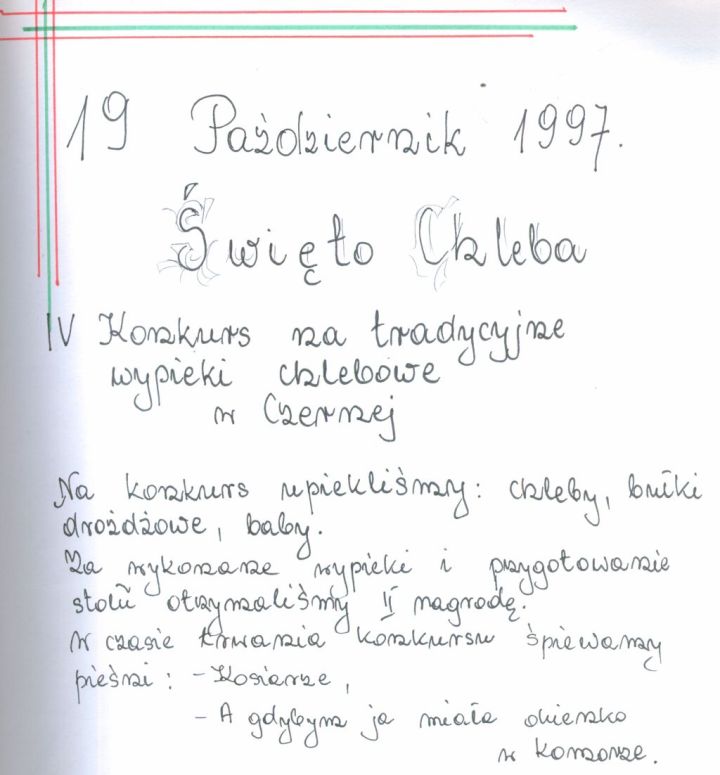 19 Październik 1997.
Święto Chleba
IV Konkurs na tradycyjne
wypieki chlebowe
w Czernej
Na konkurs upiekliśmy: chleby, bułki
drożdżowe, baby.
Za wykonane wypieki i przygotowanie
stołu otrzymaliśmy II nagrodę.
W czasie trwania konkursu śpiewamy
pieśni: - Kosiarze,
- A gdybym ja miała okienko
w komorze.